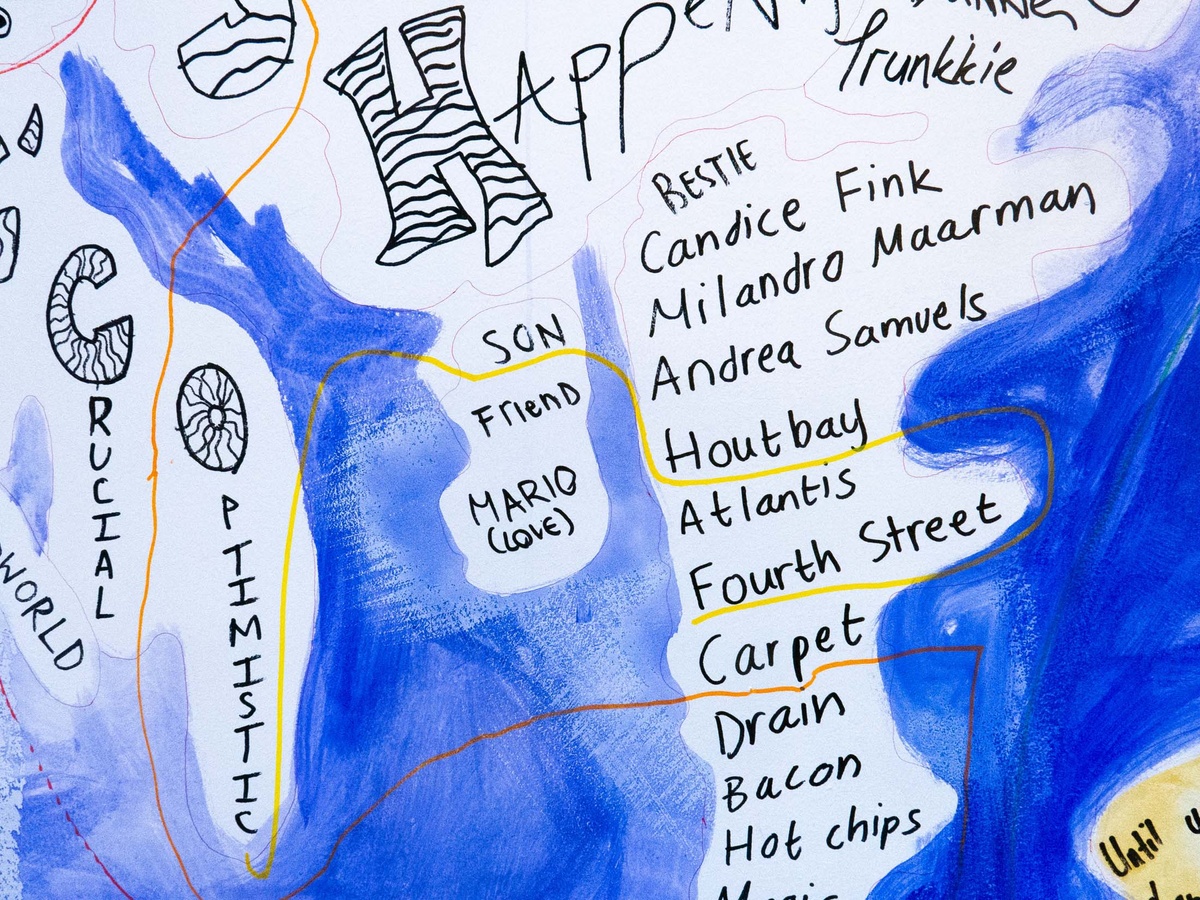 Trunkkie
BESTIE
Candice Fink
Milandro Maarman
Andrea Samuels
Houtbay
Atlantis
Fourth Street
Carpet
Drain
Bacon
Hot chips
SON
FrienD
MARIO
(LOVE)
CRUCIAL
OPTIMISTIC
WORLD
Until